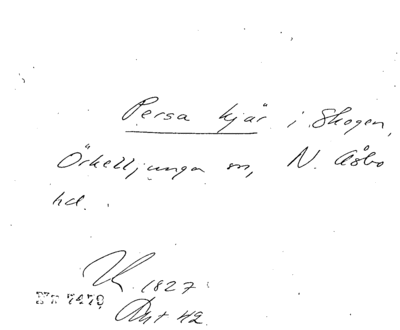 Persa kjär i Skogen,
Örkelljunga sn, N. Åsbo
hd.
1827
Nr 7479
Akt 42.